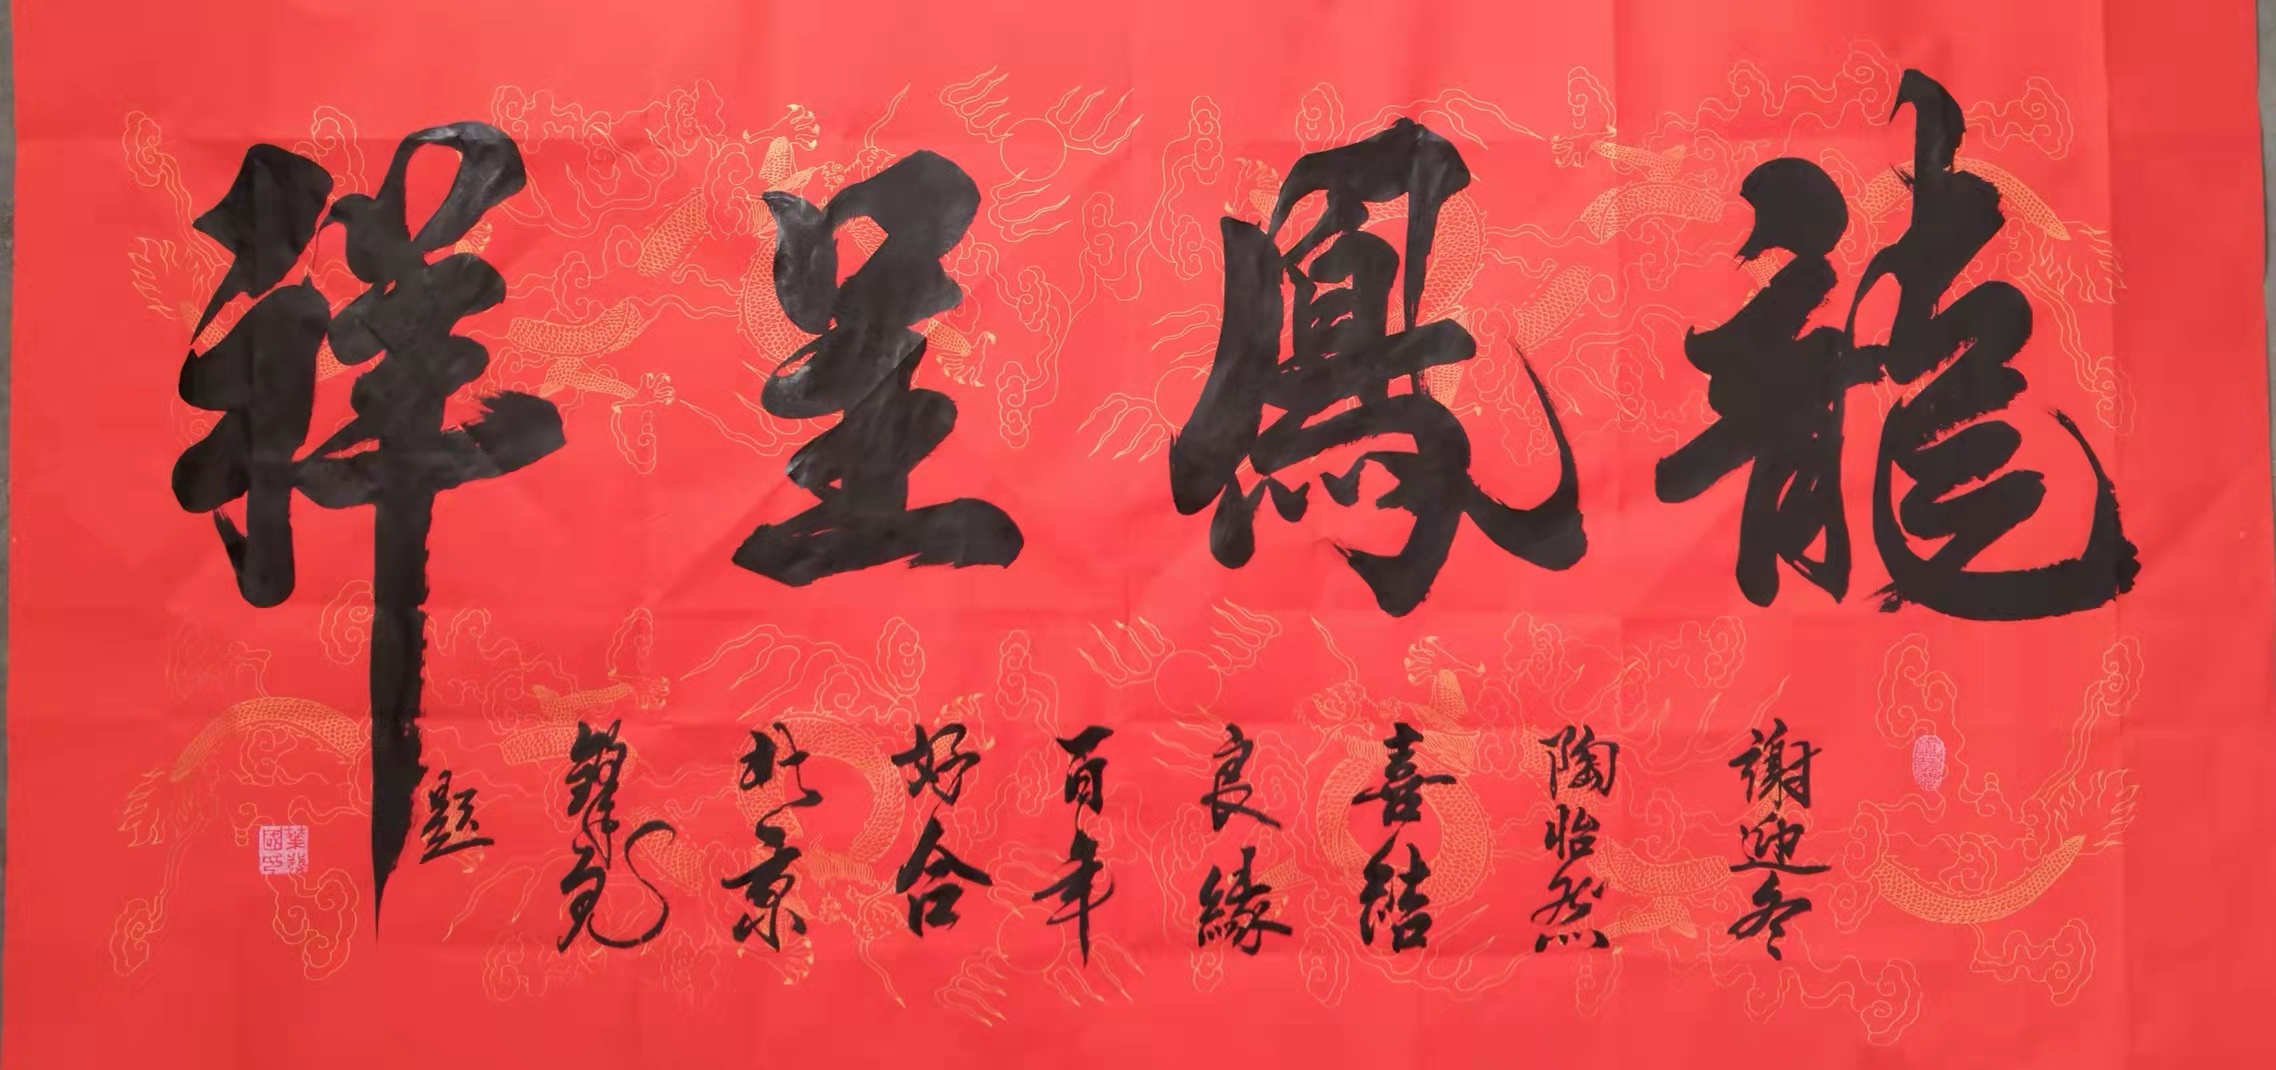 龍鳳呈祥
謝迎冬
陶怡然
喜結
良緣
百年
好合
北京
題